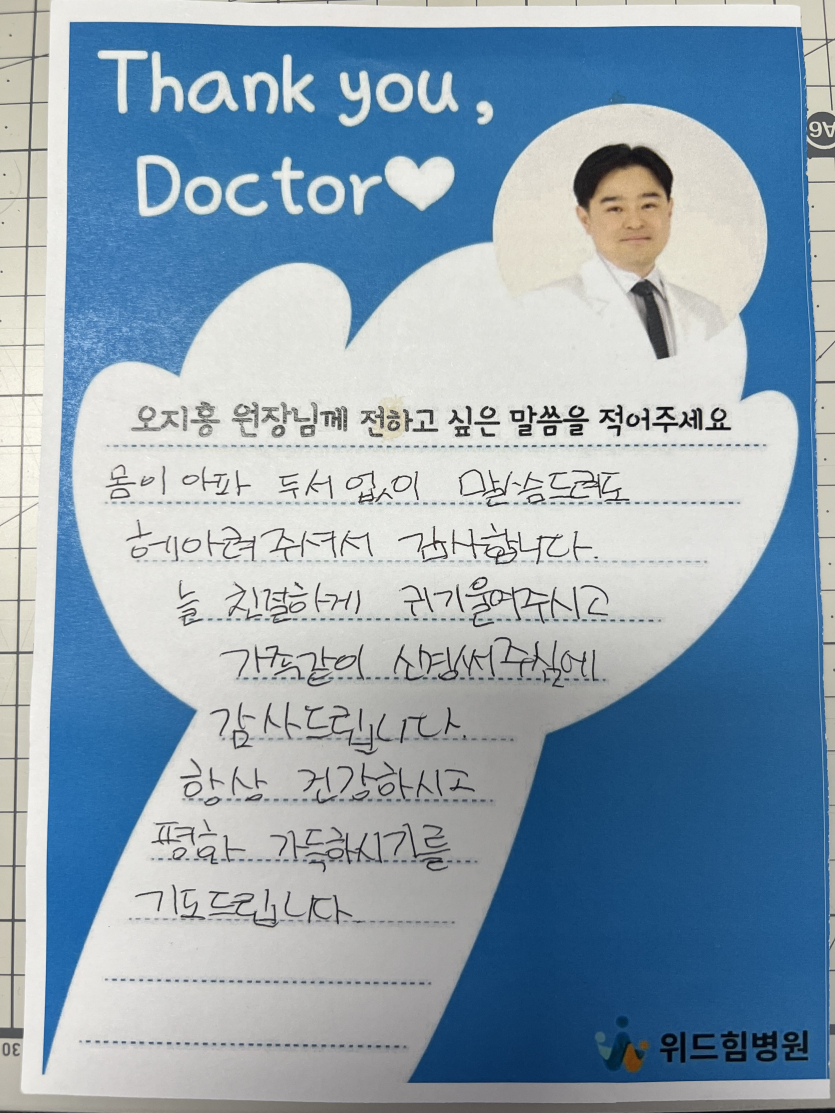 Thank you,
Doctor
오지홍 원장님께 전하고 싶은 말씀을 적어주세요
몸이 아파 두서 없이 말씀드려도
헤아려 주셔서 감사합니다.
늘 친절하게 귀기울여주시고
가족같이 신경써주심에
감사드립니다.
항상 건강하시고
평화 가득하시기를
기도드립니다.
위드힘병원
A6
30